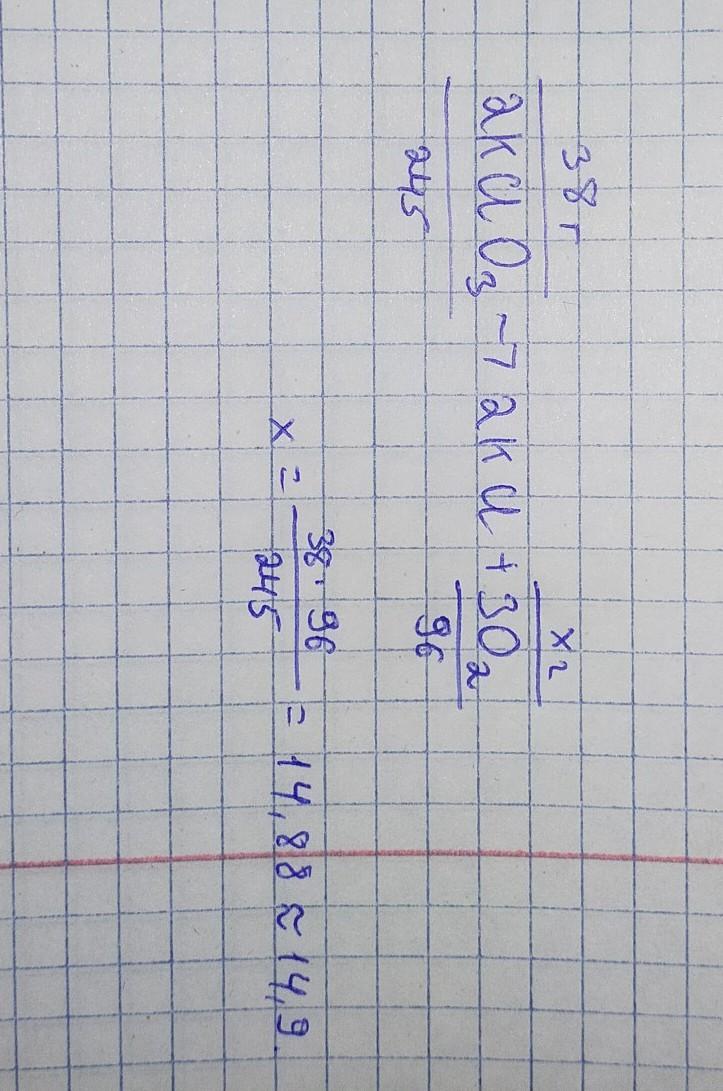 38 г x г
2KClO₃ → 2KCl + 3O₂
245 96
x = 38 · 96 / 245 = 14,88 ≈ 14,9